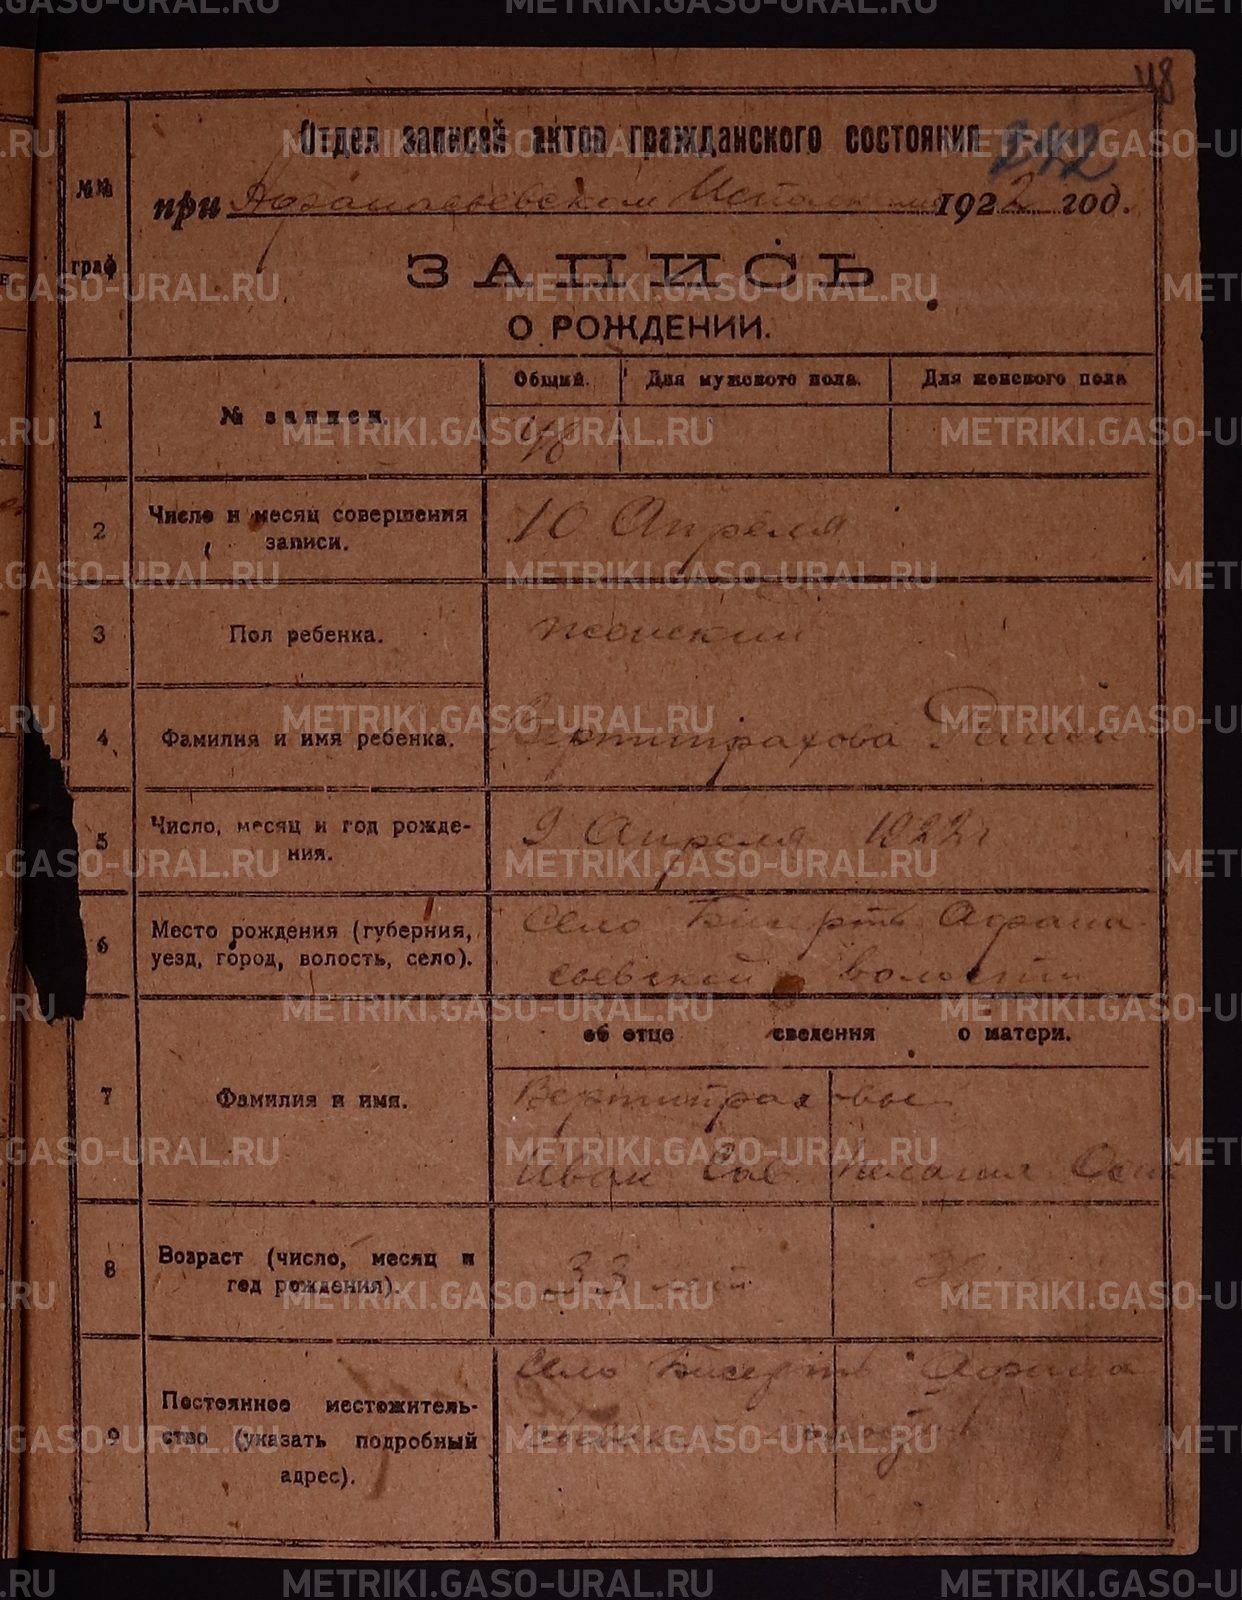 48
Отдел записей актов гражданского состояния 242
при Афанасьевском 1922 год.
№№ граф
ЗАПИСЬ
О РОЖДЕНИИ.
Общий. Для мужского пола. Для женского пола
1 № записи. 48
2 Число и месяц совершения записи. 10 Апреля
3 Пол ребенка. женский
4 Фамилия и имя ребенка. Вертипрахова
5 Число, месяц и год рождения. 9 Апреля 1922 г
6 Место рождения (губерния, уезд, город, волость, село). Село Бисерть Афана
сьевской волости
об отце сведения о матери.
7 Фамилия и имя. Вертипраховы
Иван Сав. Пелагия Оси
8 Возраст (число, месяц и год рождения). 33 лет
9 Постоянное местожительство (указать подробный адрес). Село Бисерть Афана
сьевской волости
METRIKI.GASO-URAL.RU